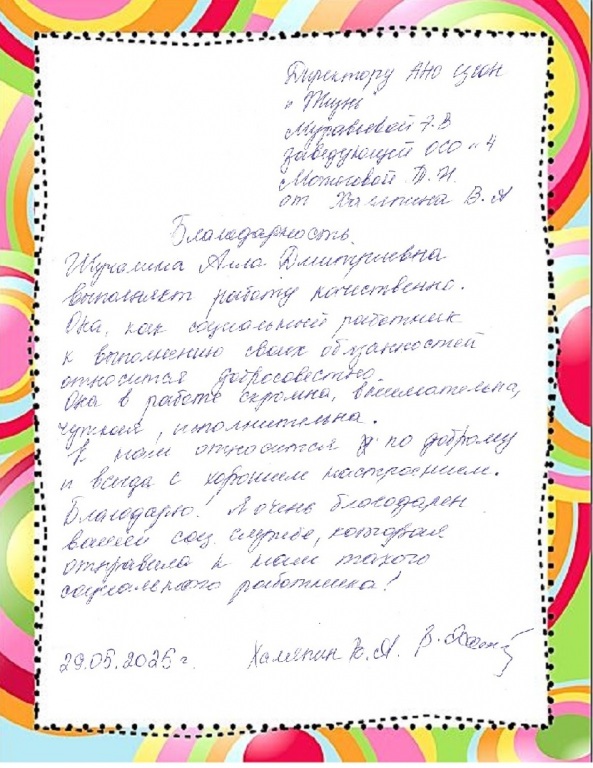 Директору АНО ЦСОН
"Жить"
Муравьевой Т.В
заведующей ОСО №4
Мотыговой Т.Н.
от Халяпина В.А
Благодарность.
Шухомина Алла Дмитриевна
выполняет работу качественно.
Она, как социальный работник
к выполнению своих обязанностей
относится добросовестно.
Она в работе скромна, внимательна,
чуткая, исполнительна.
К нам относится по доброму
и всегда с хорошем настроением.
Благодарю! Я очень благодарен
вашей соц службе, которая
отправила к нам такого
социального работника!
29.05.2025 г. Халяпин В.А.